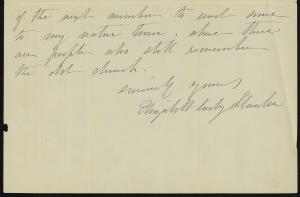 of the next number to send some
to my native town, where there
are people who still remember
the old church.
Sincerely yours
Elizabeth Cady Stanton